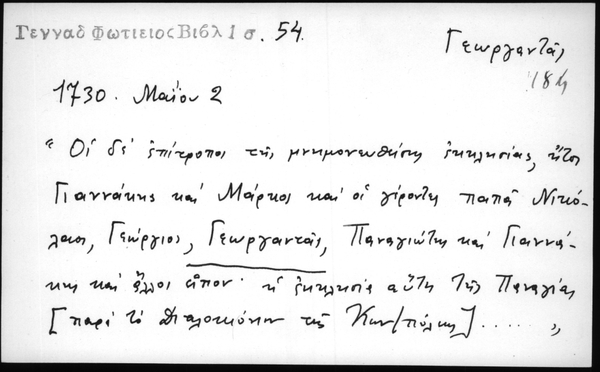 Γενναδ Φωτιειος Βιβλ 1 σ. 54.
Γεωργαντᾶς
184
1730. Μαΐου 2
" Οἱ δέ ἐπίτροποι τῆς μνημονευθείσης ἐκκλησίας, ἤτοι
Γιαννάκης καί Μάρκος καί οἱ γέροντες παπᾶ Νικό-
λαος, Γεώργιος, Γεωργαντᾶς, Παναγιώτης καί Γιαννά-
κης καί ἄλλοι εἶπον· ἡ ἐκκλησία αὕτη τῆς Παναγίας
[παρά τό Διπλοκιόνιον τῆς Κων/πόλεως] ..... "